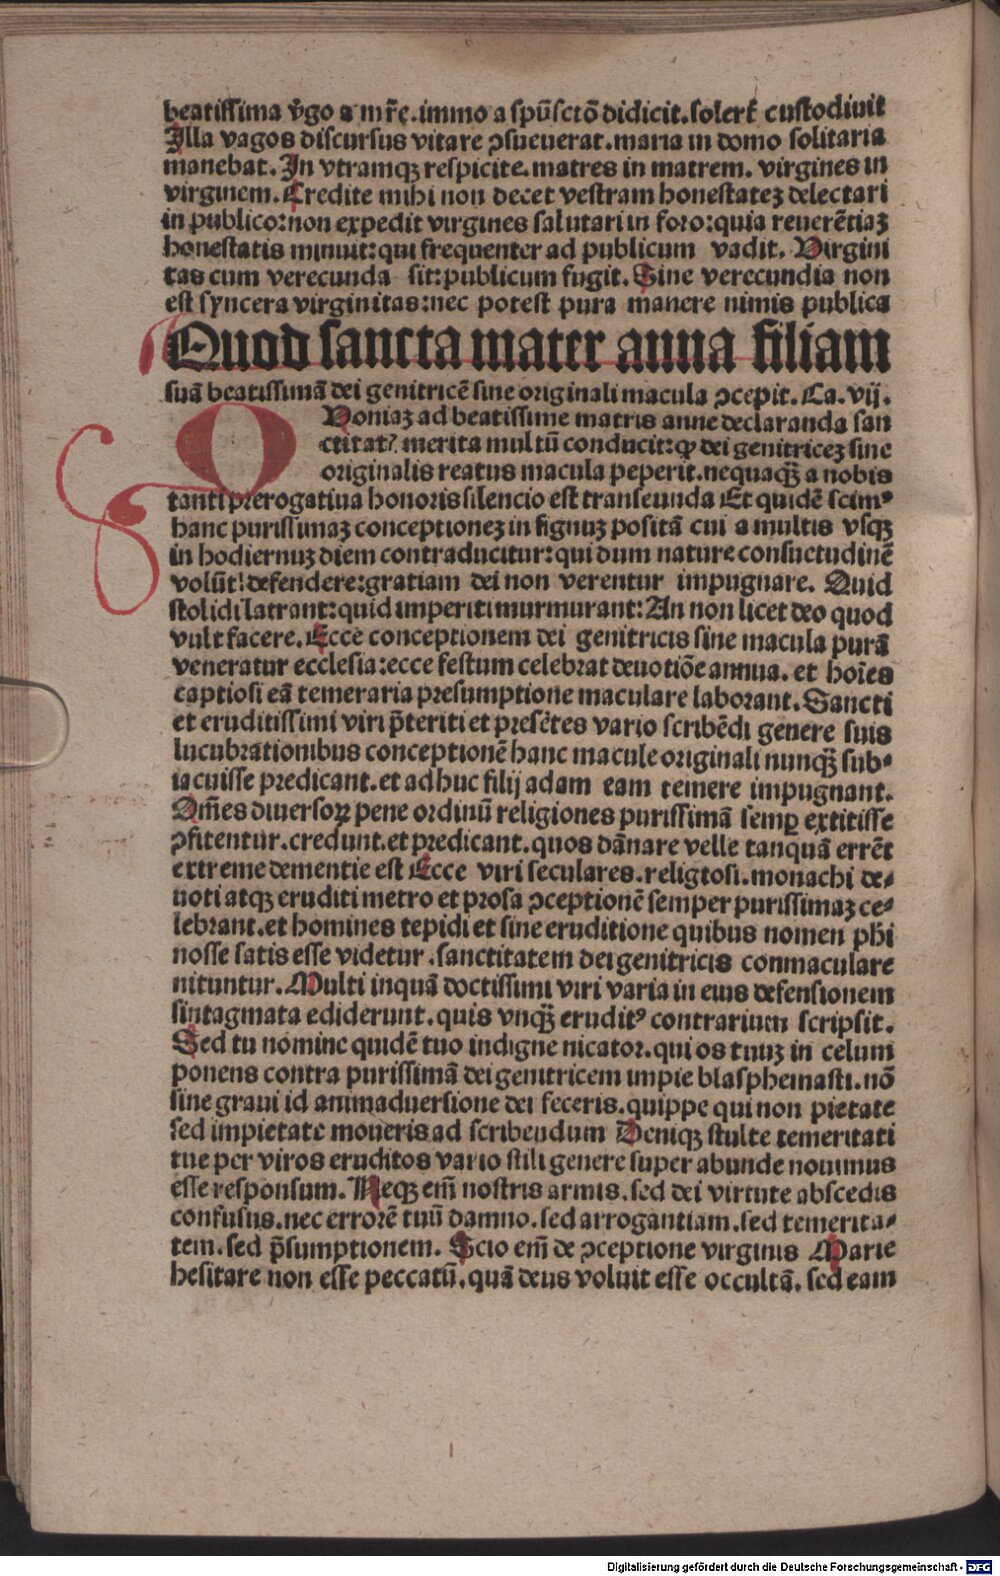 beatissima v̄go a mr̄e.immo a spū sctō didicit.solert̄ custodiuit
Illa vagos discursus vitare ↄsueuerat.maria in domo solitaria
manebat.In vtramqꝫ respicite.matres in matrem. virgines in
virginem.Credite mihi non decet vestram honestateʒ delectari
in publico:non expedit virgines salutari in foro:quia reuerētiaʒ
honestatis minuit:qui frequenter ad publicum vadit. Virgini
tas cum verecunda sit:publicum fugit.Sine verecundia non
est syncera virginitas:nec potest pura manere nimis publica
Quod sancta mater anna filiam
suā beatissimā dei genitricē sine originali macula ↄcepit.Ca.vij.
QVoniaʒ ad beatissime matris anne declaranda san
ctitatꝭ merita multū conducit:ꝙ dei genitriceʒ sine
originalis reatus macula peperit.nequaqꝫ̄ a nobis
tanti prerogatiua honoris silencio est transeunda Et quidē scimꝰ
hanc purissimaʒ conceptioneʒ in signuʒ positā cui a multis vsqꝫ
in hodiernuʒ diem contraducitur:qui dum nature consuetudinē
volūt defendere:gratiam dei non verentur impugnare. Quid
stolidi latrant:quid imperiti murmurant:An non licet deo quod
vult facere.Ecce conceptionem dei genitricis sine macula purā
veneratur ecclesia:ecce festum celebrat deuotiōe annua. et hoīes
captiosi eā temeraria presumptione maculare laborant.Sancti
et eruditissimi viri p̄teriti et presētes vario scribēdi genere suis
lucubrationibus conceptionē hanc macule originali nunqꝫ̄ sub-
iacuisse predicant.et adhuc filij adam eam temere impugnant.
Om̄es diuersoꝝ pene ordinū religiones purissimā semꝑ extitisse
ↄfitentur.credunt.et predicant.quos dānare velle tanquā errēt
extreme dementie est Ecce viri seculares.religiosi.monachi de-
uoti atqꝫ eruditi metro et prosa ↄceptionē semper purissimaʒ ce-
lebrant.et homines tepidi et sine eruditione quibus nomen phi
nosse satis esse videtur .sanctitatem dei genitricis conmaculare
nituntur.Multi inquā doctissimi viri varia in eius defensionem
sintagmata ediderunt.quis vnqꝫ̄ eruditꝰ contrarium scripsit.
Sed tu nomine quidē tuo indigne nicator.qui os tuuʒ in celum
ponens contra purissimā dei genitricem impie blasphemasti.nō
sine graui id animaduersione dei feceris.quippe qui non pietate
sed impietate moueris ad scribendum Deniqꝫ stulte temeritati
tue per viros eruditos vario stili genere super abunde nouimus
esse responsum.Neqꝫ em̄ nostris armis.sed dei virtute abscedis
confusus.nec errorē tuū damno.sed arrogantiam.sed temerita-
tem.sed p̄sumptionem. Scio em̄ de ↄceptione virginis Marie
hesitare non esse peccatū.quā deus voluit esse occultā. sed eam
Digitalisierung gefördert durch die Deutsche Forschungsgemeinschaft - DFG